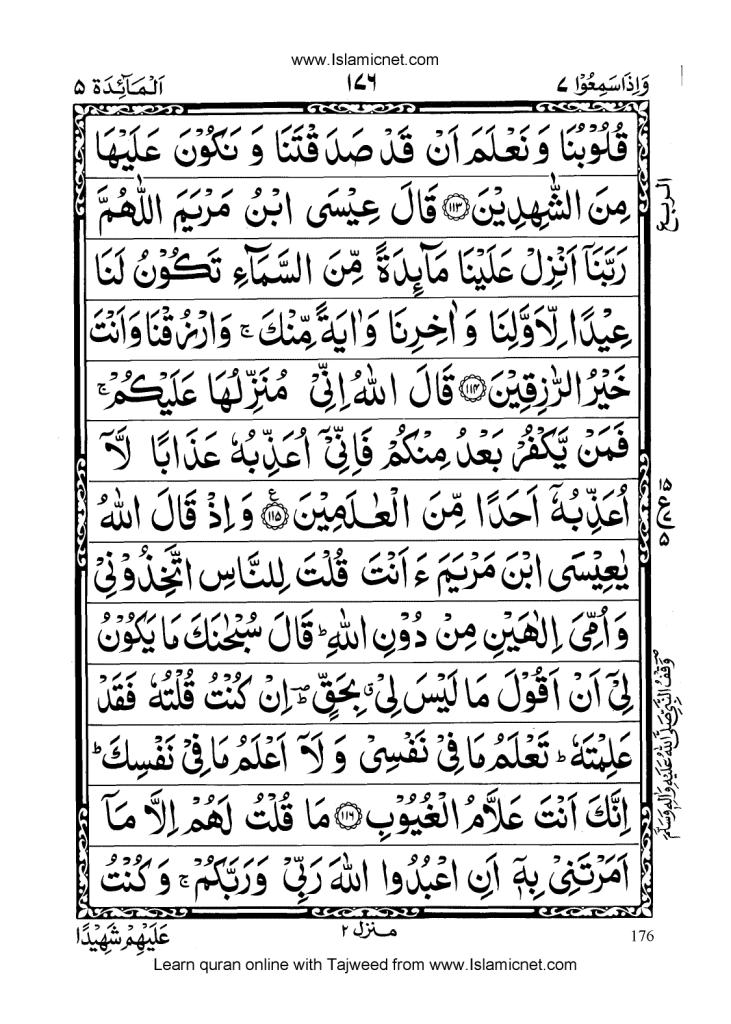 www.Islamicnet.com
وَاِذَاسَمِعُوْا ٧
١٧٦
اَلْمَآئِدَة ٥
قُلُوْبُنَا وَ نَعْلَمَ اَنْ قَدْ صَدَقْتَنَا وَ نَكُوْنَ عَلَيْهَا
مِنَ الشّٰهِدِيْنَ ﴿١١٣﴾ قَالَ عِيْسَى ابْنُ مَرْيَمَ اللّٰهُمَّ
الربع
رَبَّنَاۤ اَنْزِلْ عَلَيْنَا مَآىِٕدَةً مِّنَ السَّمَآءِ تَكُوْنُ لَنَا
عِيْدًا لِّاَوَّلِنَا وَ اٰخِرِنَا وَ اٰيَةً مِّنْكَ ۚ وَارْزُقْنَا وَاَنْتَ
خَيْرُ الرّٰزِقِيْنَ ﴿١١٤﴾ قَالَ اللّٰهُ اِنِّيْ مُنَزِّلُهَا عَلَيْكُمْ ۚ
فَمَنْ يَّكْفُرْ بَعْدُ مِنْكُمْ فَاِنِّيْۤ اُعَذِّبُهٗ عَذَابًا لَّاۤ
اُعَذِّبُهٗۤ اَحَدًا مِّنَ الْعٰلَمِيْنَ ﴿١١٥﴾ ع وَ اِذْ قَالَ اللّٰهُ
يٰعِيْسَى ابْنَ مَرْيَمَ ءَ اَنْتَ قُلْتَ لِلنَّاسِ اتَّخِذُوْنِيْ
وَ اُمِّيَ اِلٰهَيْنِ مِنْ دُوْنِ اللّٰهِ ؕ قَالَ سُبْحٰنَكَ مَا يَكُوْنُ
لِيْۤ اَنْ اَقُوْلَ مَا لَيْسَ لِيْ ۗ بِحَقٍّ ؔؕ اِنْ كُنْتُ قُلْتُهٗ فَقَدْ
عَلِمْتَهٗ ؕ تَعْلَمُ مَا فِيْ نَفْسِيْ وَ لَاۤ اَعْلَمُ مَا فِيْ نَفْسِكَ ؕ
وقف النبي صلى الله عليه واله وسلم
اِنَّكَ اَنْتَ عَلَّامُ الْغُيُوْبِ ﴿١١٦﴾ مَا قُلْتُ لَهُمْ اِلَّا مَاۤ
اَمَرْتَنِيْ بِهٖۤ اَنِ اعْبُدُوا اللّٰهَ رَبِّيْ وَرَبَّكُمْ ۚ وَ كُنْتُ
176
منزل ٢
عَلَيْهِمْ شَهِيْدًا
Learn quran online with Tajweed from www.Islamicnet.com